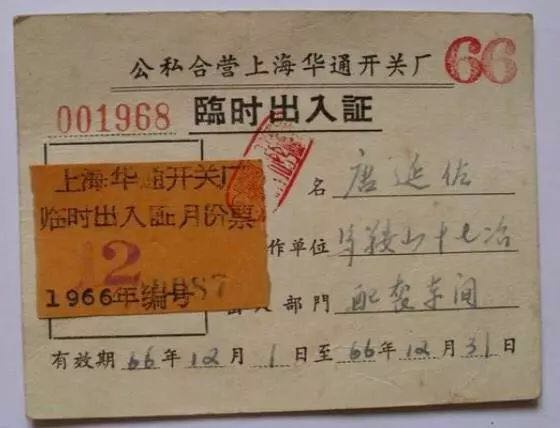 公私合营上海华通开关厂
66
001968
臨时出入証
上海华通开关厂
临时出入证月份票
12
1966年编号
名 唐延佑
作单位 马鞍山十七冶
部門 配套车间
有效期 66年12月1日至66年12月31日